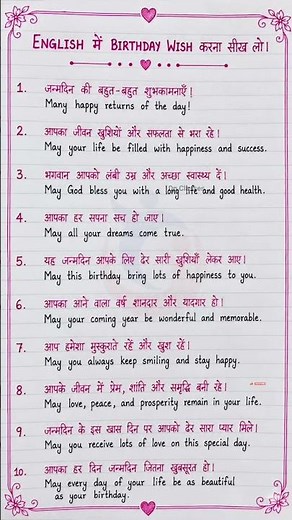 ENGLISH में BIRTHDAY WISH करना सीख लो।
1. जन्मदिन की बहुत-बहुत शुभकामनाएँ!
Many happy returns of the day!
2. आपका जीवन खुशियों और सफलता से भरा रहे।
May your life be filled with happiness and success.
3. भगवान आपको लंबी उम्र और अच्छा स्वास्थ्य दें।
May God bless you with a long life and good health.
4. आपका हर सपना सच हो जाए।
May all your dreams come true.
5. यह जन्मदिन आपके लिए ढेर सारी खुशियाँ लेकर आए।
May this birthday bring lots of happiness to you.
6. आपका आने वाला वर्ष शानदार और यादगार हो।
May your coming year be wonderful and memorable.
7. आप हमेशा मुस्कुराते रहें और खुश रहें।
May you always keep smiling and stay happy.
8. आपके जीवन में प्रेम, शांति और समृद्धि बनी रहे।
May love, peace, and prosperity remain in your life.
9. जन्मदिन के इस खास दिन पर आपको ढेर सारा प्यार मिले।
May you receive lots of love on this special day.
10. आपका हर दिन जन्मदिन जितना खूबसूरत हो।
May every day of your life be as beautiful
as your birthday.